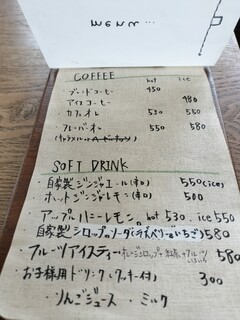 menu...
COFFEE hot ice
・ブレンドコーヒー 450
・アイスコーヒー 480
・カフェオレ 530 550
・フレーバーオレ 550 580
(キャラメル or
SOFT DRINK
・自家製ジンジャエール(辛口) 550(ice)
・ホットジンジャレモン(辛口) 500
・アップルハニーレモン. hot 530. ice 550
・自家製シロップのソーダ(ラズベリーorいちご) 580
・フルーツアイスティー 580
・お子様用ドリンク(クッキー付) 300
・りんごジュース ・ミルク